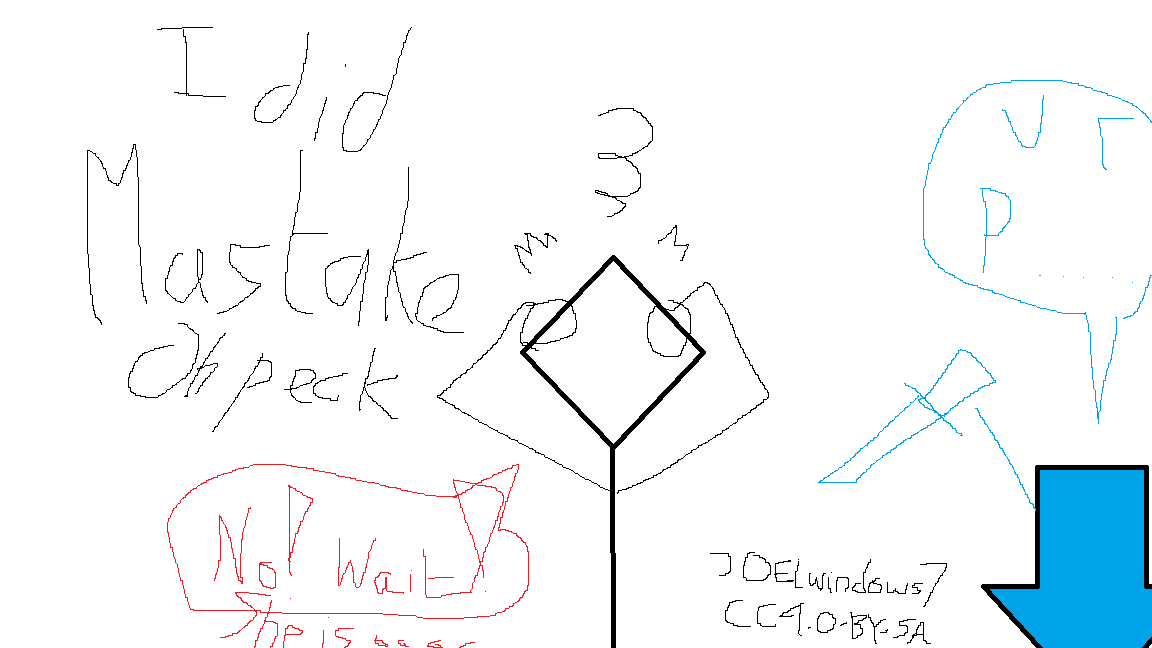 I did
Mastake
Oh peck
3
No! Wait
She is
JOELwindows7
CC4.0-BY-SA